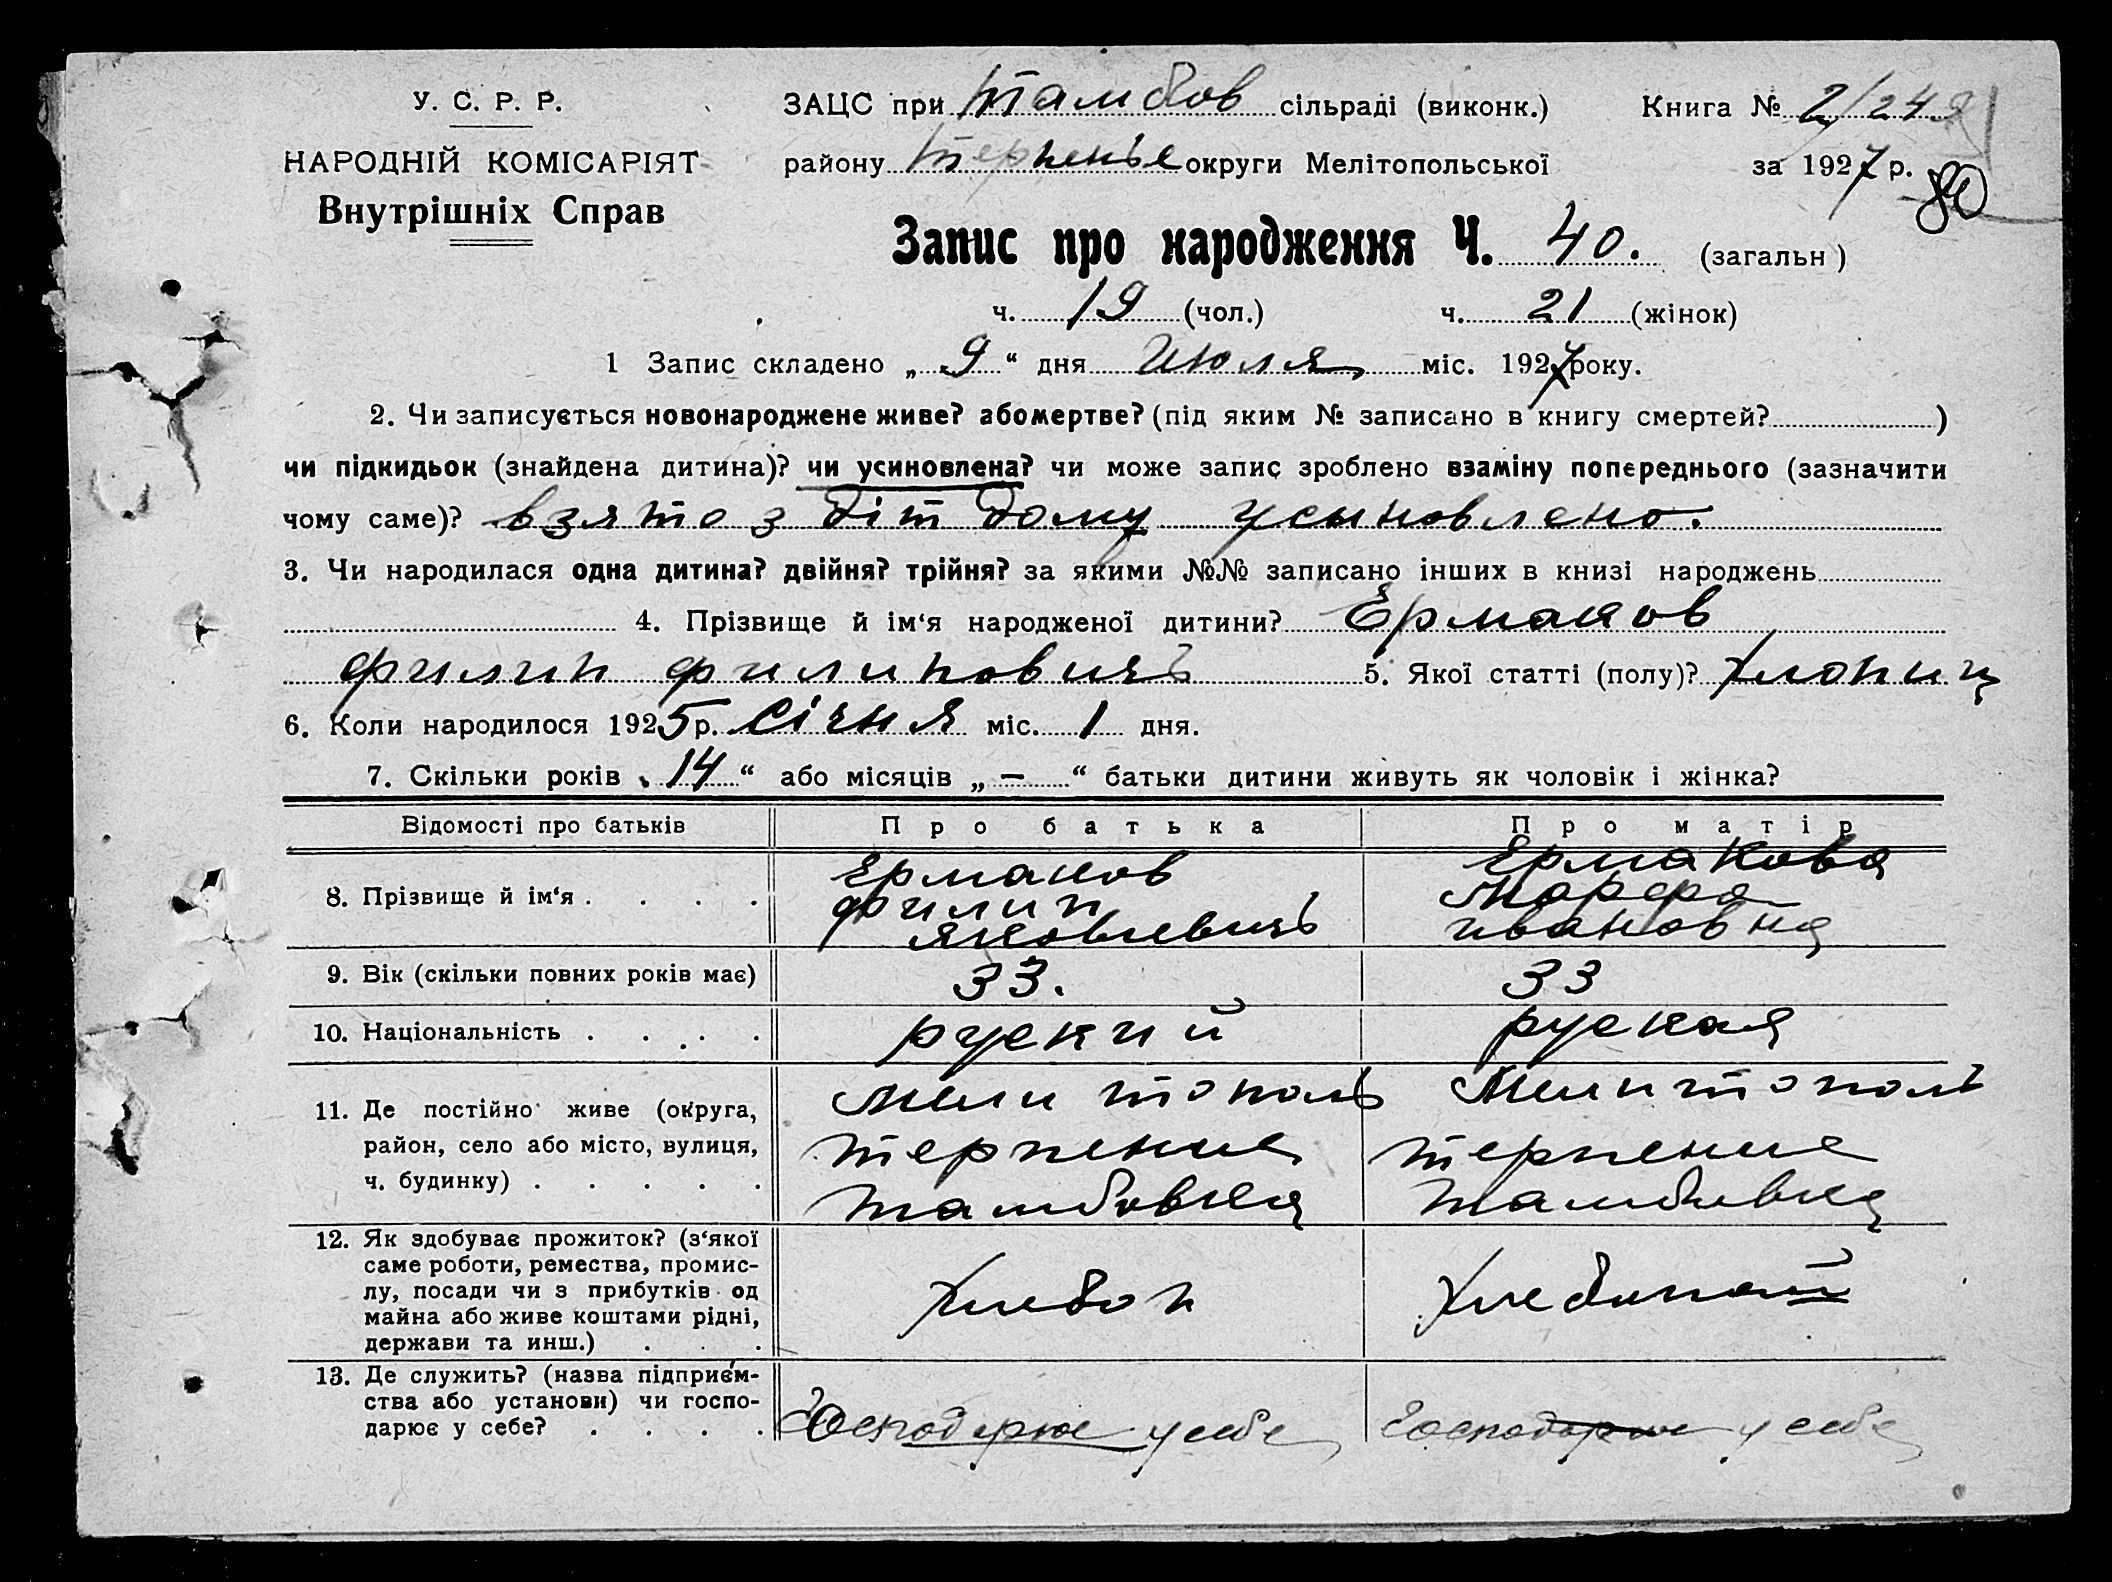 У. С. Р. Р.
НАРОДНІЙ КОМІСАРІЯТ
Внутрішніх Справ
ЗАЦС при Тамбов сільраді (виконк.) Книга № 2/24
району Терпенье округи Мелітопольської за 1927 р.
80
Запис про народження Ч. 40. (загальн)
ч. 19 (чол.) ч. 21 (жінок)
1 Запис складено „ 9 “ дня Июля міс. 1927 року.
2. Чи записується новонароджене живе? або мертве? (під яким № записано в книгу смертей? )
чи підкидьок (знайдена дитина)? чи усиновлена? чи може запис зроблено взаміну попереднього (зазначити
чому саме)? взято з діт дому усыновлено.
3. Чи народилася одна дитина? двійня? трійня? за якими №№ записано інших в книзі народжень
4. Прізвище й ім‘я народженої дитини? Ермаков
Филип Филиповичь 5. Якої статті (полу)? Хлопиц
6. Коли народилося 1925 р. Січня міс. 1 дня.
7. Скільки років „ 14 “ або місяців „ — “ батьки дитини живуть як чоловік і жінка?
Відомості про батьків Про батька Про матір
8. Прізвище й ім‘я . . . . Ермаков Филип Яковлевичь Ермакова Марфа Ивановна
9. Вік (скільки повних років має) 33. 33
10. Національність . . . . руский руская
11. Де постійно живе (округа, Мелитополь Мелитополь
район, село або місто, вулиця, Терпение Терпение
ч. будинку) . . . . . Тамбовка Тамбовка
12. Як здобуває прожиток? (з‘якої
саме роботи, ремества, промис-
лу, посади чи з прибутків од Хлебоп Хлебопаш
майна або живе коштами рідні,
держави та инш.) . . .
13. Де служить? (назва підприєм-
ства або установи) чи госпо-
дарює у себе? . . . . Господарюе у себе Господарюе у себе